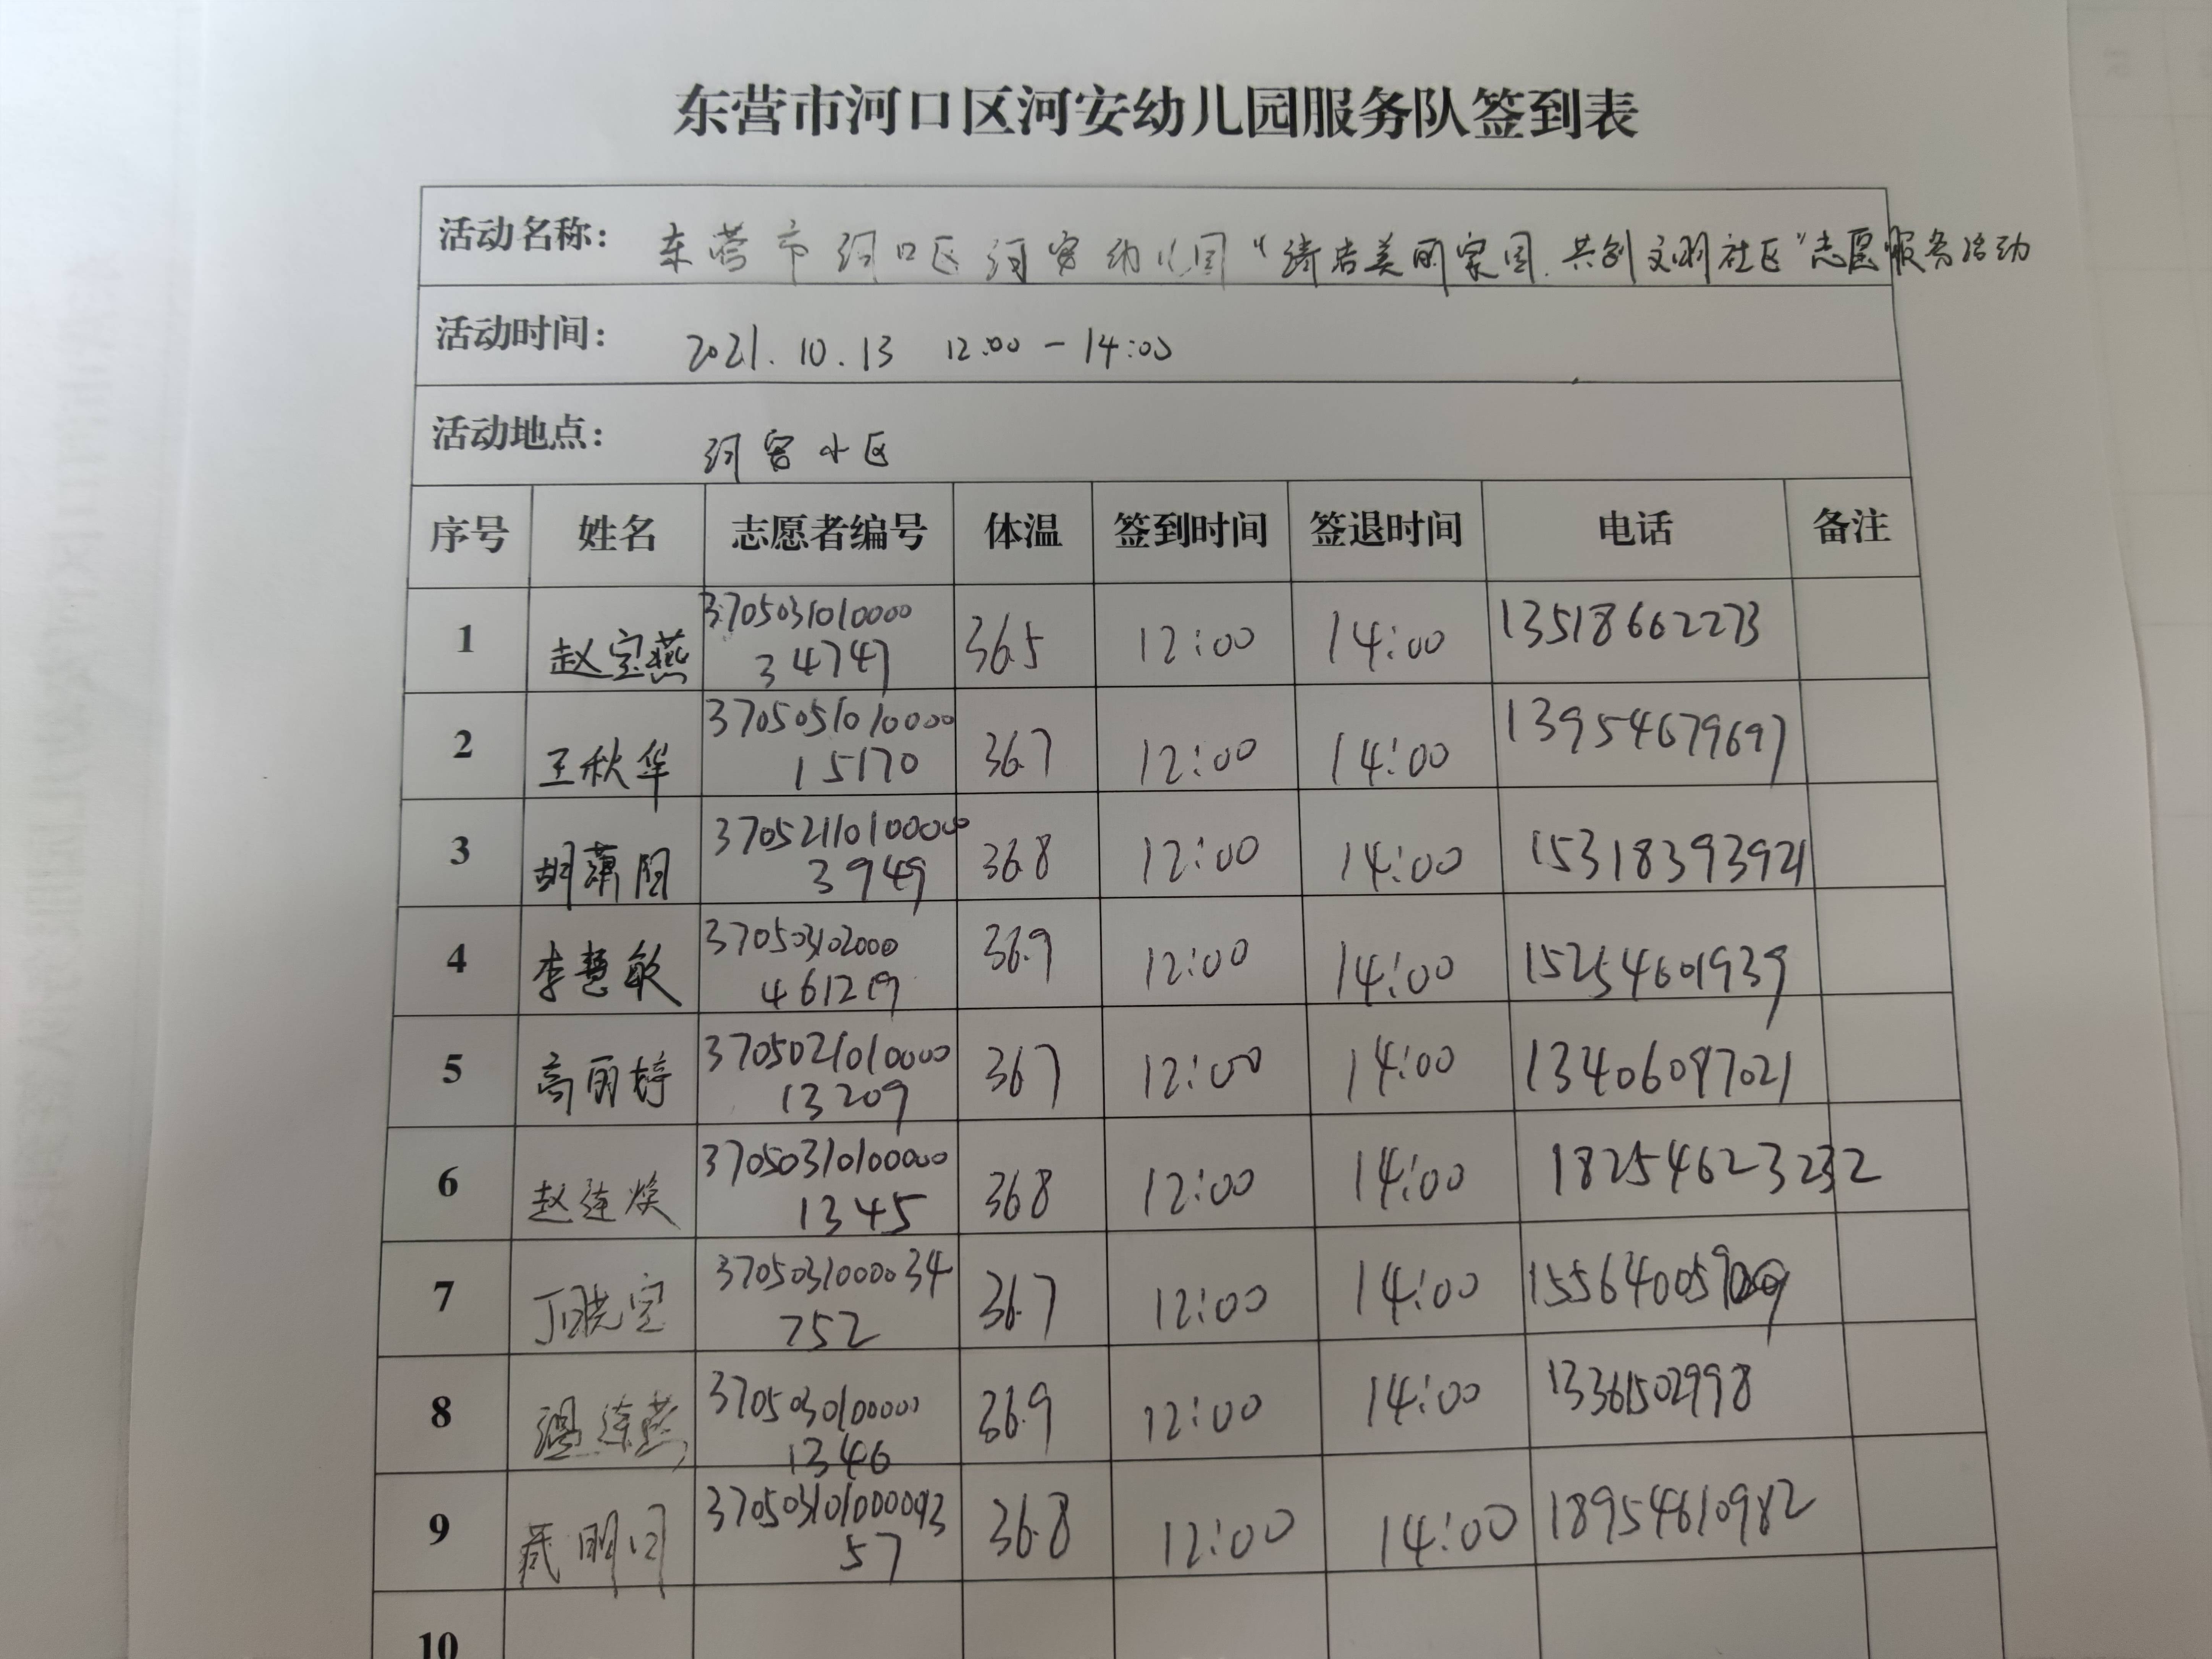 东营市河口区河安幼儿园服务队签到表
活动名称： 东营市河口区河安幼儿园“清洁美丽家园，共创文明社区”志愿服务活动
活动时间： 2021.10.13 12:00-14:00
活动地点： 河安小区
序号 姓名 志愿者编号 体温 签到时间 签退时间 电话 备注
1 赵宝燕 3705031010000 36.5 12:00 14:00 13518662273
34747
2 王秋华 3705051010000 36.7 12:00 14:00 13954679697
15170
3 胡萧阳 3705211010000 36.8 12:00 14:00 15318393921
3949
4 李慧敏 370503102000 36.9 12:00 14:00 15254601939
461219
5 高丽婷 3705021010000 36.7 12:00 14:00 13406097021
13209
6 赵连焕 37050310100000 36.8 12:00 14:00 18254623232
1345
7 丁晓空 370503100034 36.7 12:00 14:00
752
8 温连燕 3705030100000 36.9 12:00 14:00 13361502998
1346
9 明 370503101000093 36.8 12:00 14:00 18954610982
57
10